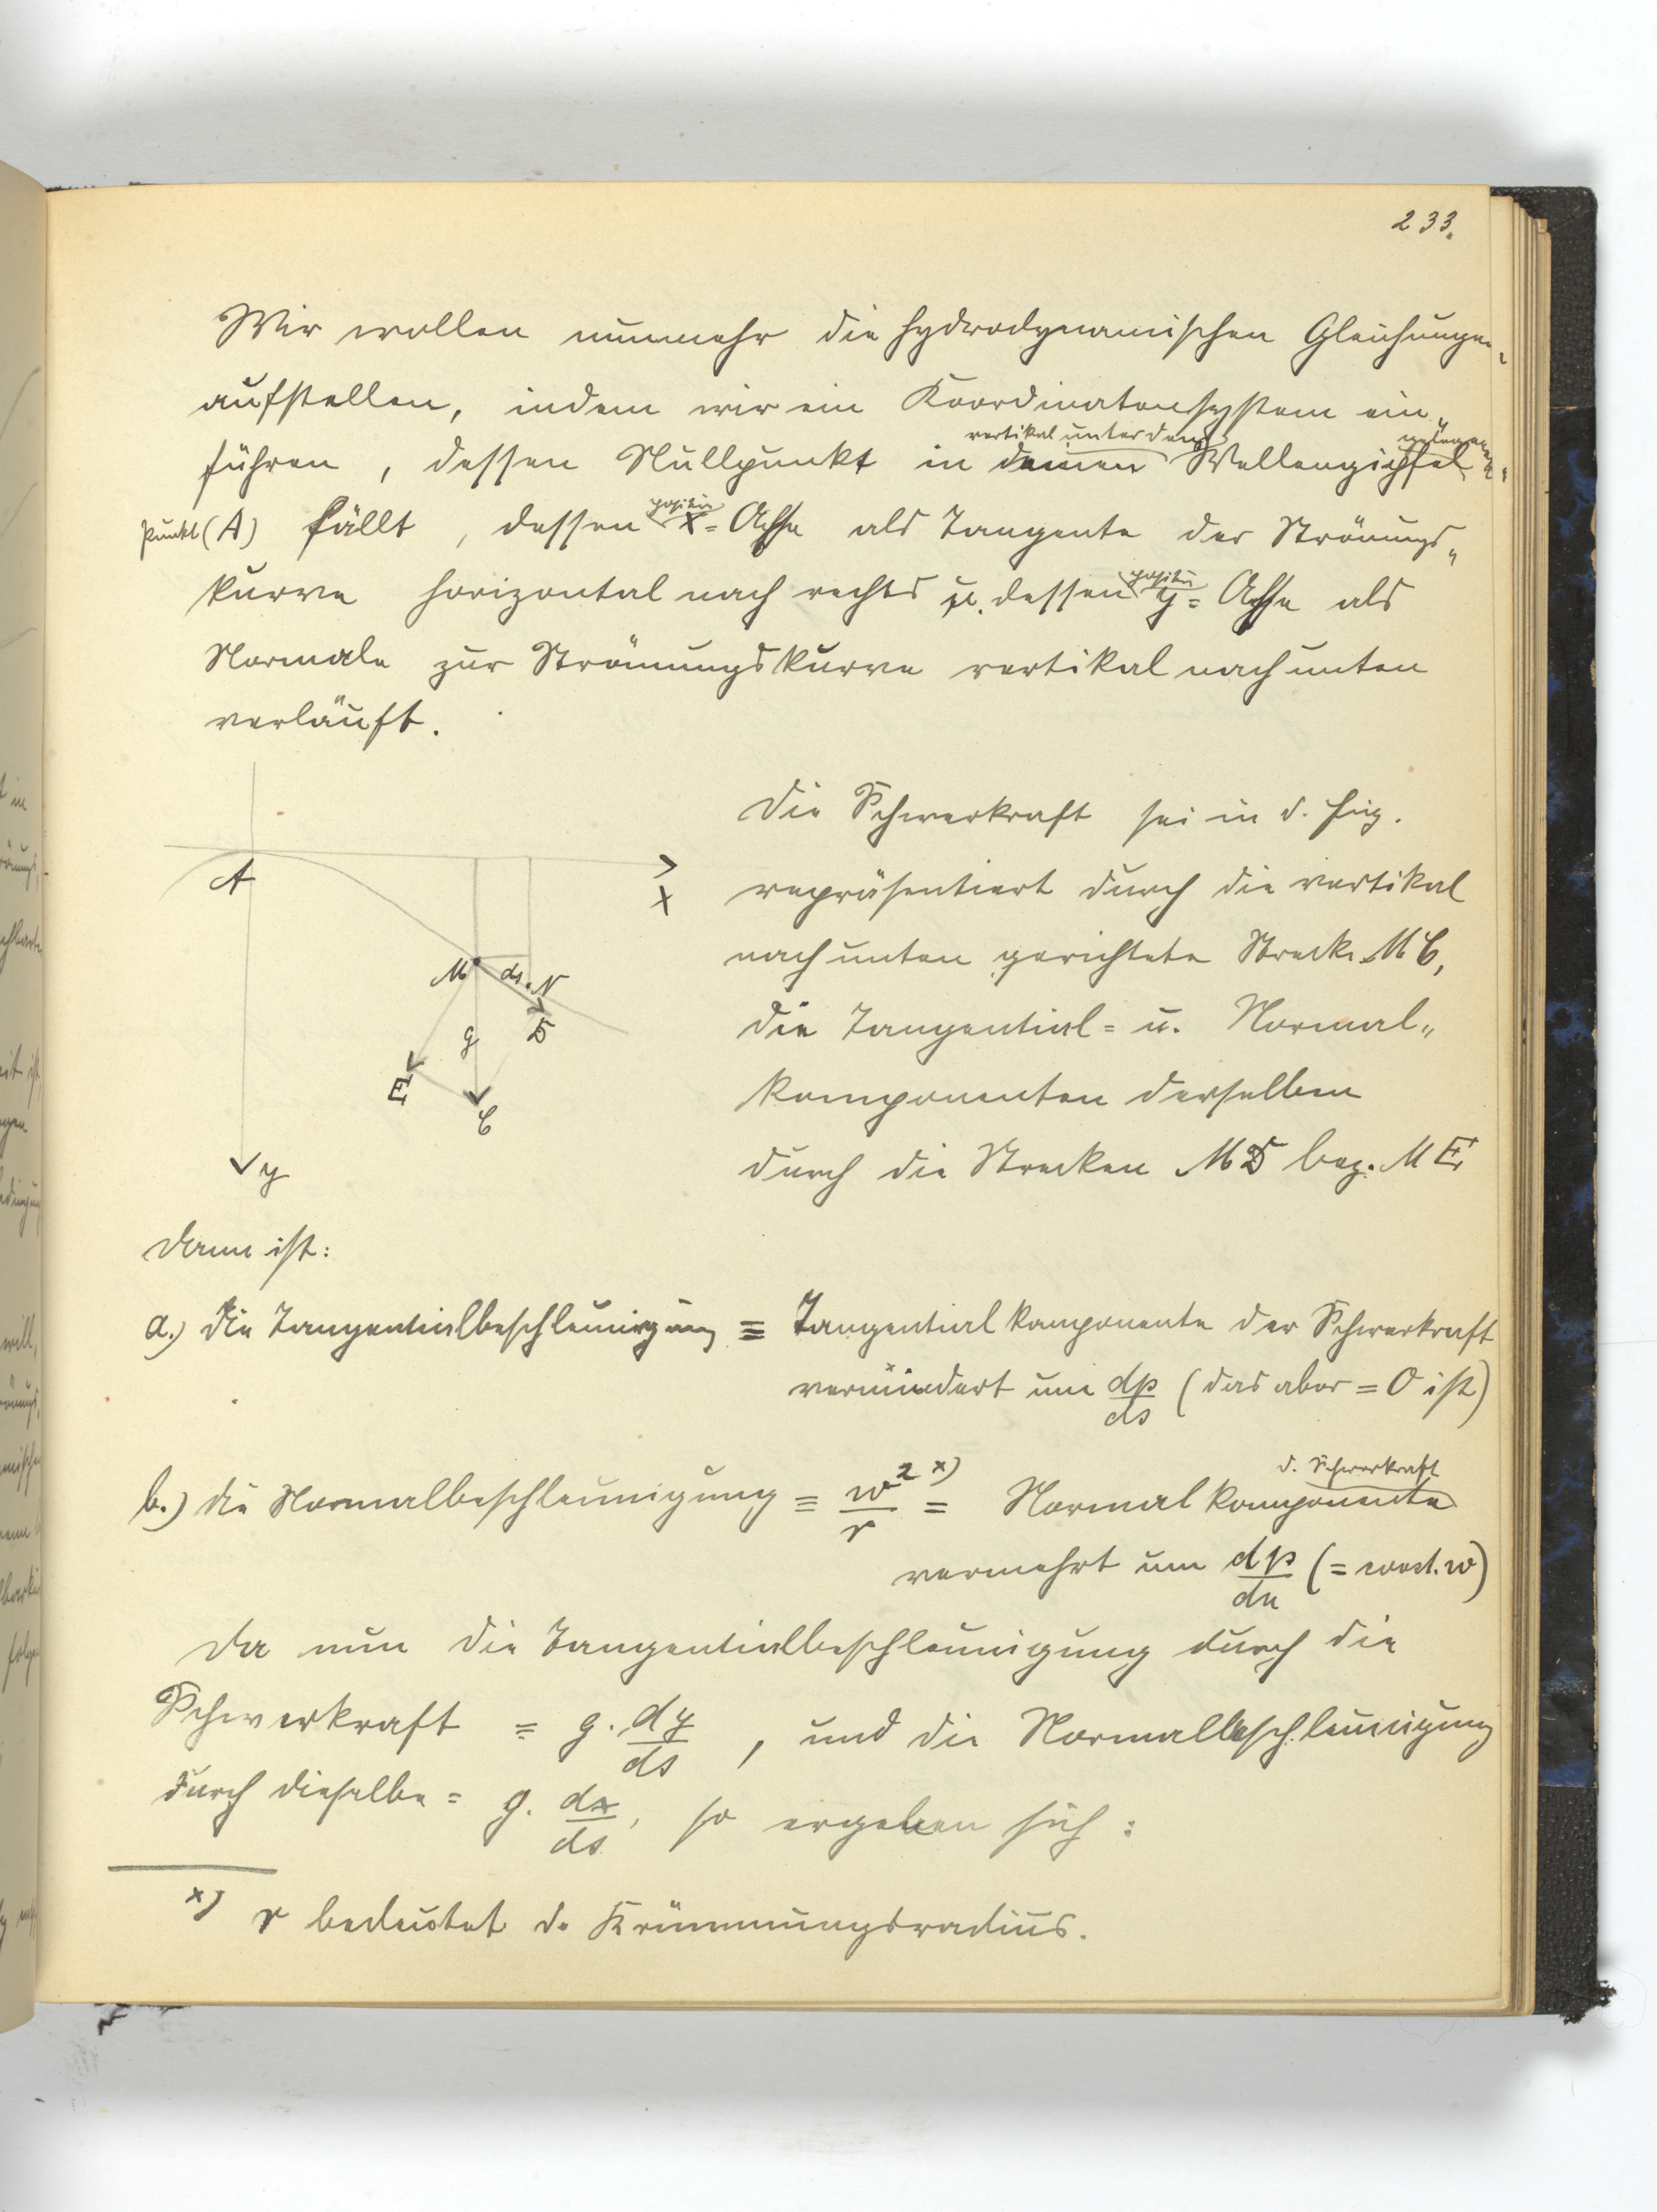 233.
Wir wollen nunmehr die hydrodynamischen Gleichungen
aufstellen, indem wir ein Koordinatensystem ein„
vertikal unter dem gelegenen
führen, dessen Nullpunkt in den Wellengipfel„
punkt (A) fällt, dessen positiv x= Achse als Tangente der Strömungs„
kurve horizontal nach rechts u. dessen positiv y= Achse als
Normale zur Strömungskurve vertikal nach unten
verläuft.
Die Schwerkraft sei in d. Fig.
repräsentiert durch die vertikal
nach unten gerichtete Strecke MC,
die Tangential= u. Normal„
komponenten derselben
durch die Strecken MD bez. ME
A
x
M ds N
g D
E
C
y
Dann ist:
a.) die Tangentialbeschleunigung = Tangentialkomponente der Schwerkraft
vermindert um dp/ds (das aber = 0 ist)
d. Schwerkraft
b.) die Normalbeschleunigung = w²/r x) = Normalkomponente
vermehrt um dp/dn (= const. w)
Da nun die Tangentialbeschleunigung durch die
Schwerkraft = g. dy/ds, und die Normalbeschleunigung
durch dieselbe = g. dx/ds, so ergeben sich:
x) r bedeutet d. Krümmungsradius.